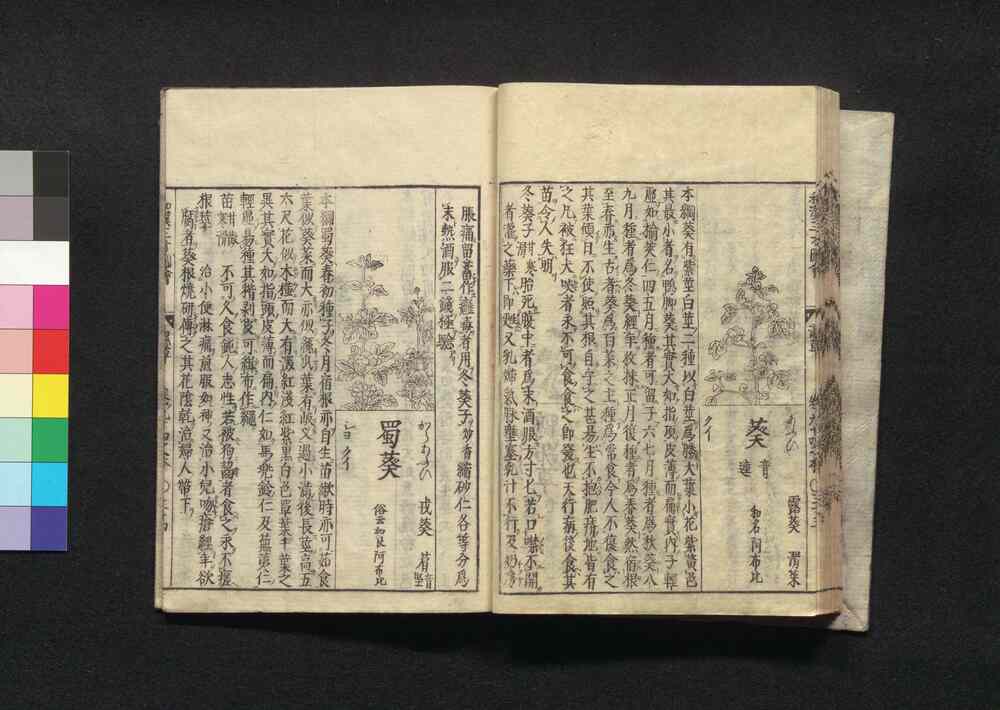 葵
音逵
露葵 滑菜
和名 阿布比
クイ
本綱葵有紫莖白莖二種以白莖爲勝大葉小花紫黃色
其最小者名鴨脚葵其實大如指頂皮薄而扁實內子輕
虛如榆莢仁四五月種者可留子六七月種者爲秋葵八
九月種者爲冬葵經年收採正月復種者爲春葵然宿根
至春亦生古者葵爲百菜之主種爲常食今人不復食之
其葉傾日不使照其根自守之甚易生不拘肥瘠地皆有
之凡被狂犬咬者永不可食食之即發也天行病後食其
苗令人失明
冬葵子 甘寒 胎死腹中者爲末酒服方寸匕若口噤不開
者灌之藥下即甦又乳婦氣脉壅塞乳汁不行及奶房
脹痛留蓄作癰毒者用冬葵子炒香縮砂仁各等分爲
末熱酒服二錢極驗
からあふひ
蜀葵
戎葵
俗云加良阿布比
ショクイ
本綱蜀葵春初種子冬月宿根亦自生苗嫩時亦可茹食
葉似葵菜而大亦似絲瓜葉有岐叉過小滿後長莖高五
六尺花似木槿而大有深紅淺紅紫黑白色單葉千葉之
異其實大如指頭皮薄而扁內仁如馬兜鈴仁及蕪荑仁
輕虛易種其稭剝皮可緝布作繩
苗 甘微寒滑 不可久食鈍人志性若被狗齧者食之永不瘥
根莖 治小便淋痛煎服如神又治小兒吻瘡經年欲
腐者葵根燒研傅之其花陰乾治婦人帶下